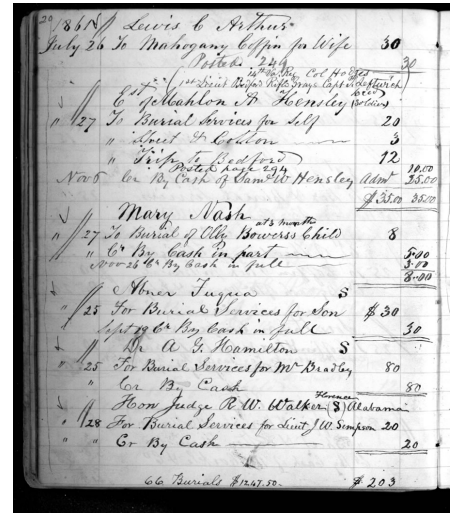 20 1861 Lewis C Arthur
July 26 To Mahogany Coffin for Wife 30
Posted 249 30
14th Va Reg Col Hodges
1st Lieut Bedford Rifle Grays Capt Leftwich
Est of Mahlon A Hensley (Soldier)
" 27 To Burial Services for Self 20
" Sheet & Cotton 3
" Trip to Bedford 12
Posted page 294 10.00
Nov 6 Cr By Cash of Saml W Hensley Adm 25.00
$35.00 35.00
Mary Nash
at 3 months
" 27 To Burial of Olly Bowers's Child 8
" Cr By Cash in part 5.00
Nov 26 Cr By Cash in full 3.00
8.00
Abner Fuqua S
" 25 For Burial Services for Son $ 30
Sept 19 Cr By Cash in full 30
Dr A G. Hamilton S
" 25 For Burial Services for Mr Bradley 80
" Cr By Cash 80
Florence
Hon Judge R. W. Walker (S) Alabama
" 28 For Burial Services for Lieut J. W. Simpson 20
" " Cr By Cash 20
66 Burials $1247.50. $ 203